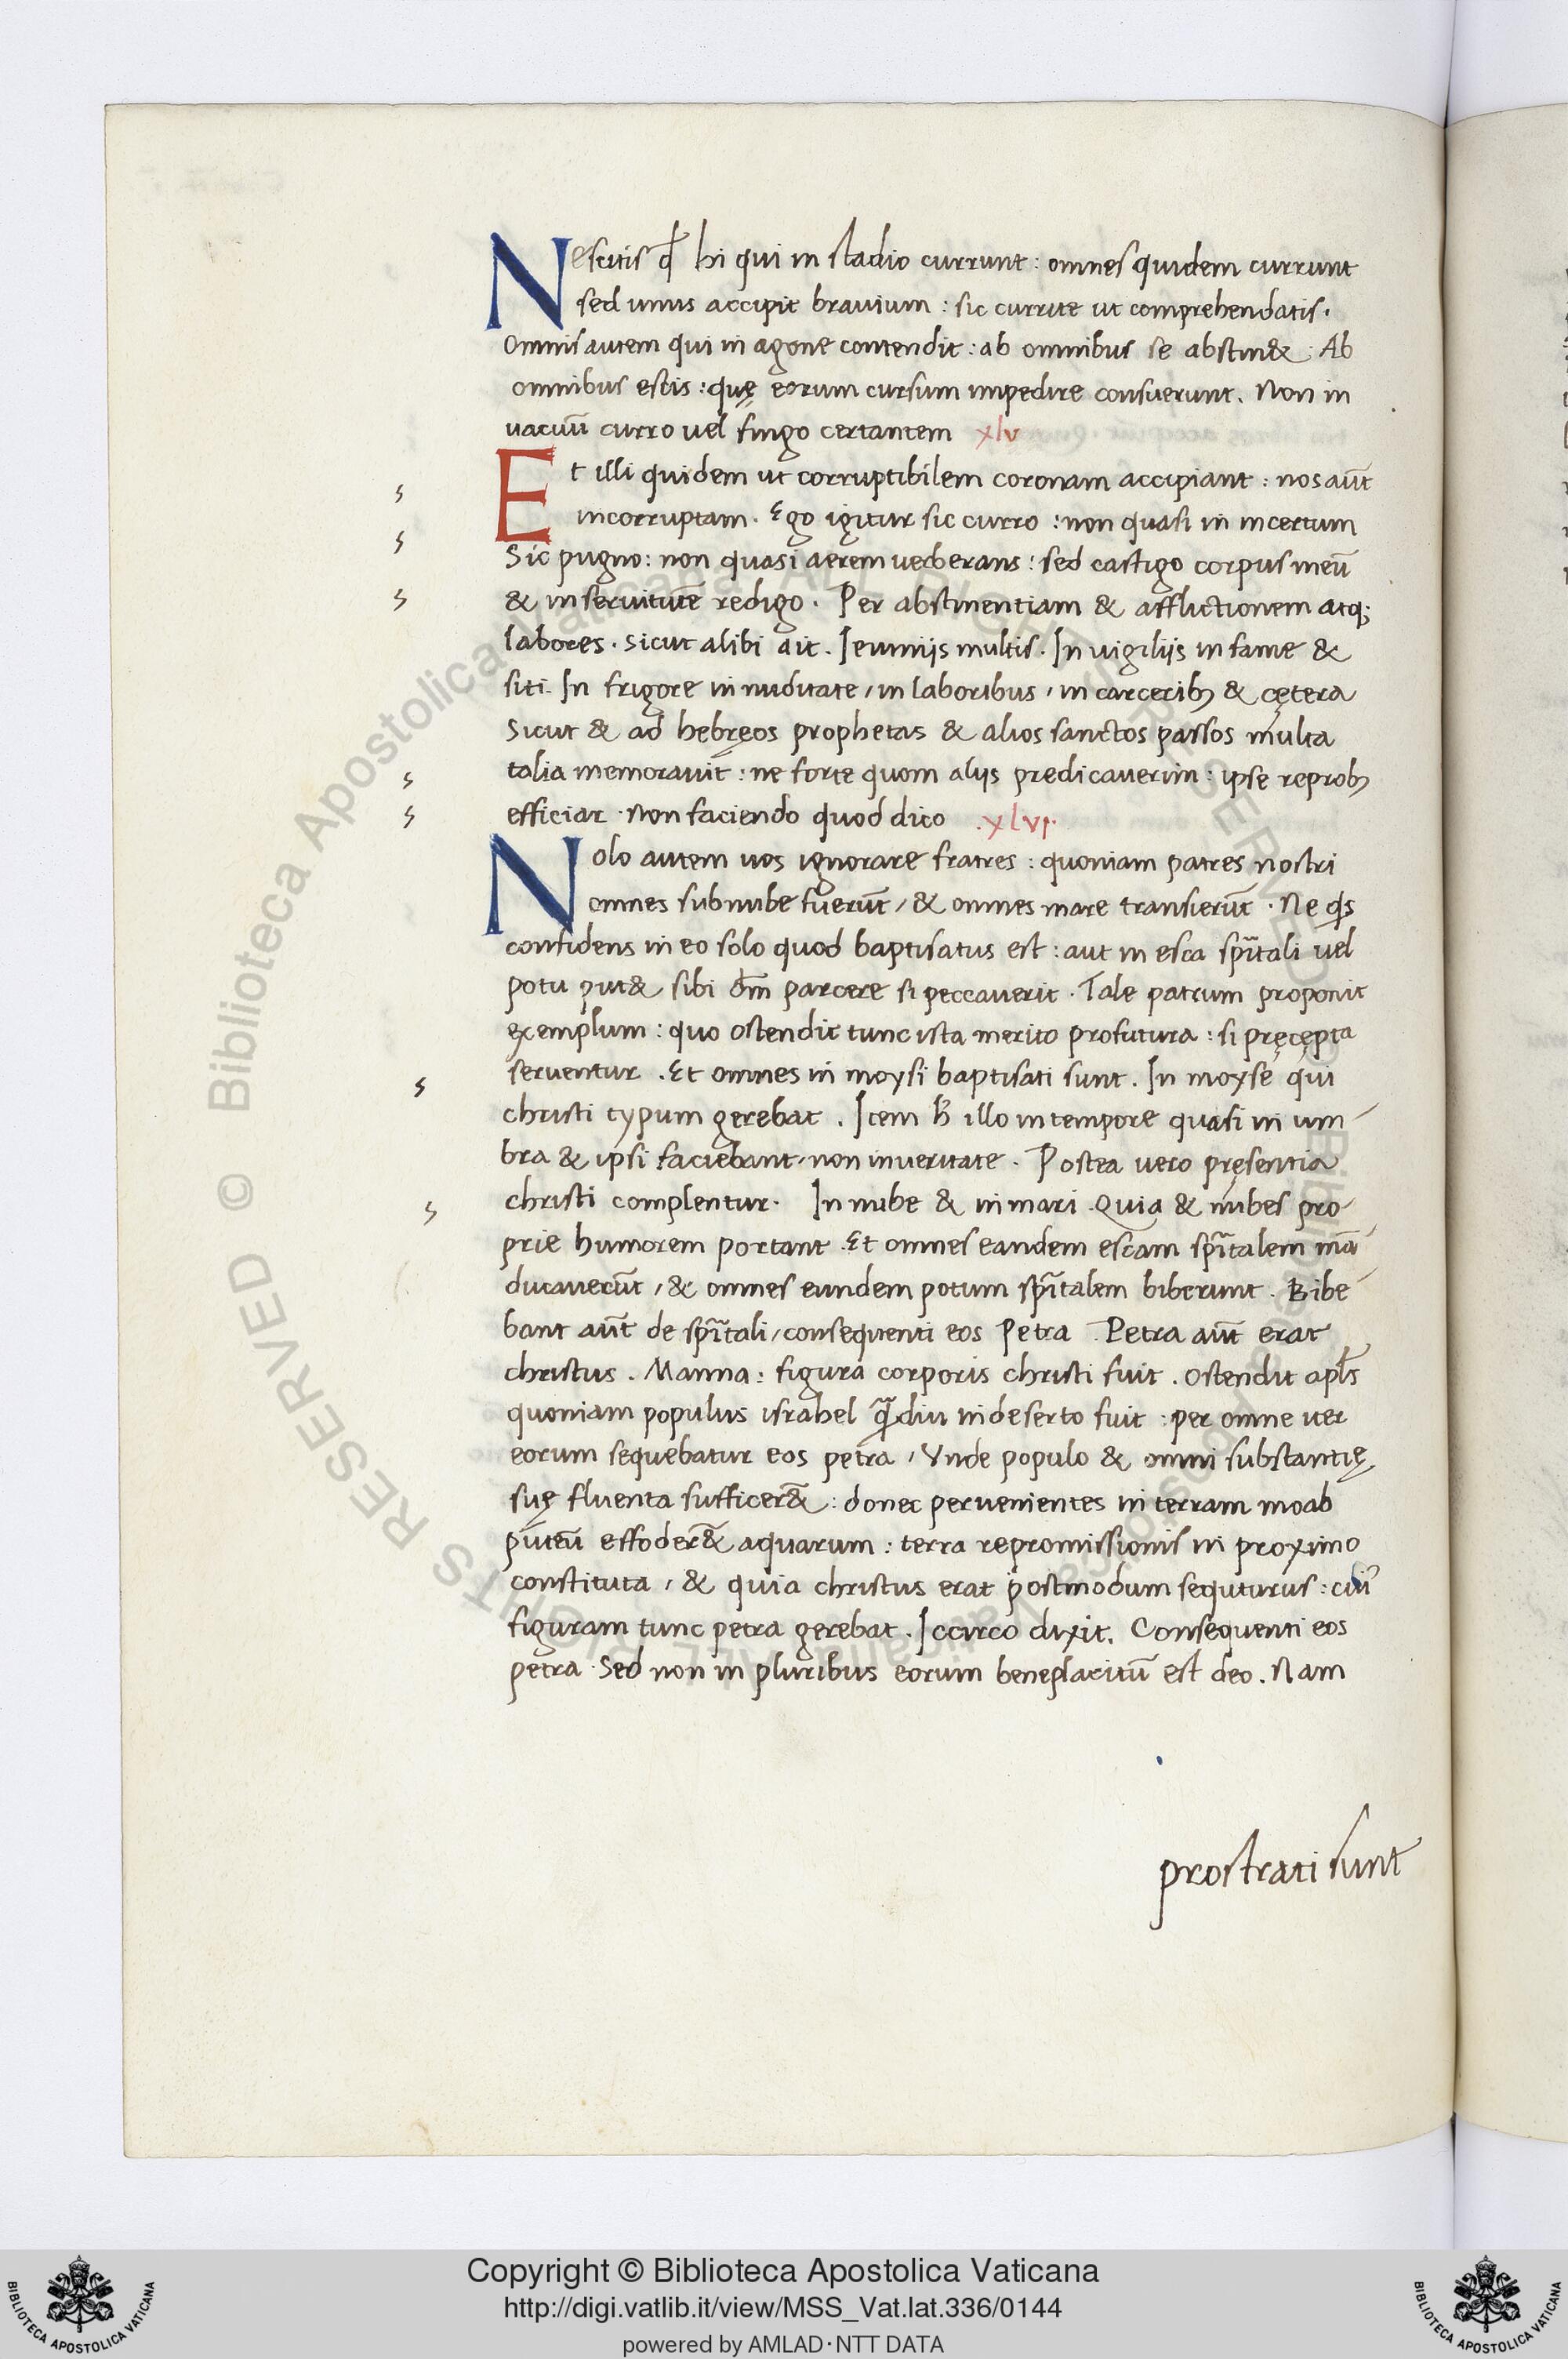 Nescitis qđ hi qui in stadio currunt : omnes quidem currunt
sed unus accipit brauium : sic currite ut comprehendatis.
Omnis autem qui in agone contendit : ab omnibus se abstin& : Ab
omnibus escis : quę eorum cursum impedire consuerunt. Non in
uacuū curro uel fingo certantem xlv
Et illi quidem ut corruptibilem coronam accipiant : nos aūt
incorruptam. Ego igitur sic curro : non quasi in incertum
Sic pugno : non quasi aerem uerberans : sed castigo corpus meū
& in seruitutē redigo. Per abstinentiam & afflictionem atq;
labores. Sicut alibi ait. Ieiuniis multis. In uigiliis in fame &
siti. In frigore in nuditate / in laboribus / in carcerib; & cętera
Sicut & ad hebręos prophetas & alios sanctos passos multa
talia memorauit : ne forte quom aliis predicauerim : ipse reprob;
efficiar. Non faciendo quod dico .xlvi.
Nolo autem uos ignorare fratres : quoniam patres nostri
omnes sub nube fuerūt / & omnes mare transierūt . Ne qs
confidens in eo solo quod baptisatus est : aut in esca spītali uel
potu put& sibi dm̄ parcere si peccauerit . Tale patrum proponit
exemplum : quo ostendit tunc ista merito profutura : si pręcępta
seruentur . Et omnes in moysi baptisati sunt. In moyse qui
christi typum gerebat . Item illo in tempore quasi in um
bra & ipsi faciebant / non in ueritate . Postea uero pręsentia
christi complentur. In nube & in mari . Quia & nubes pro
prie humorem portant . Et omnes eandem escam spītalem mā
ducauerūt / & omnes eundem potum spītalem biberunt . Bibe
bant aūt de spītali / consequenti eos Petra . Petra aūt erat
christus . Manna : figura corporis christi fuit . Ostendit apls̄
quoniam populus israhel q̄diu in deserto fuit : per omne iter
eorum sequebatur eos petra / Vnde populo & omni substantię
suę fluenta sufficer&̄ : donec peruenientes in terram moab
puteū effoder&̄ aquarum : terra repromissionis in proximo
constituta / & quia christus erat postmodum sequturus : cui
figuram tunc petra gerebat . Iccirco dixit. Consequenti eos
petra . Sed non in pluribus eorum beneplacitū est deo . Nam
prostrati sunt
© Biblioteca Apostolica Vaticana
Copyright © Biblioteca Apostolica Vaticana
http://digi.vatlib.it/view/MSS_Vat.lat.336/0144
powered by AMLAD·NTT DATA
BIBLIOTECA APOSTOLICA VATICANA
BIBLIOTECA APOSTOLICA VATICANA